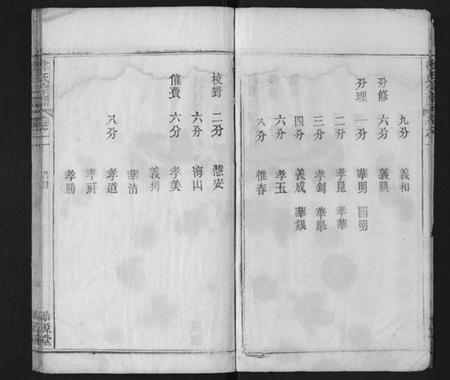 九分 義和
分修 六分 義興
分理 一分 華明 國明
二分 孝崑 孝華
三分 孝釗 華舉
四分 義成 華銀
六分 孝玉
八分 惟春
校對 二分 慧安
六分 海山
催費 六分 孝美
義利
華清
八分 孝道
孝研
孝勝
徐氏宗譜 卷之一